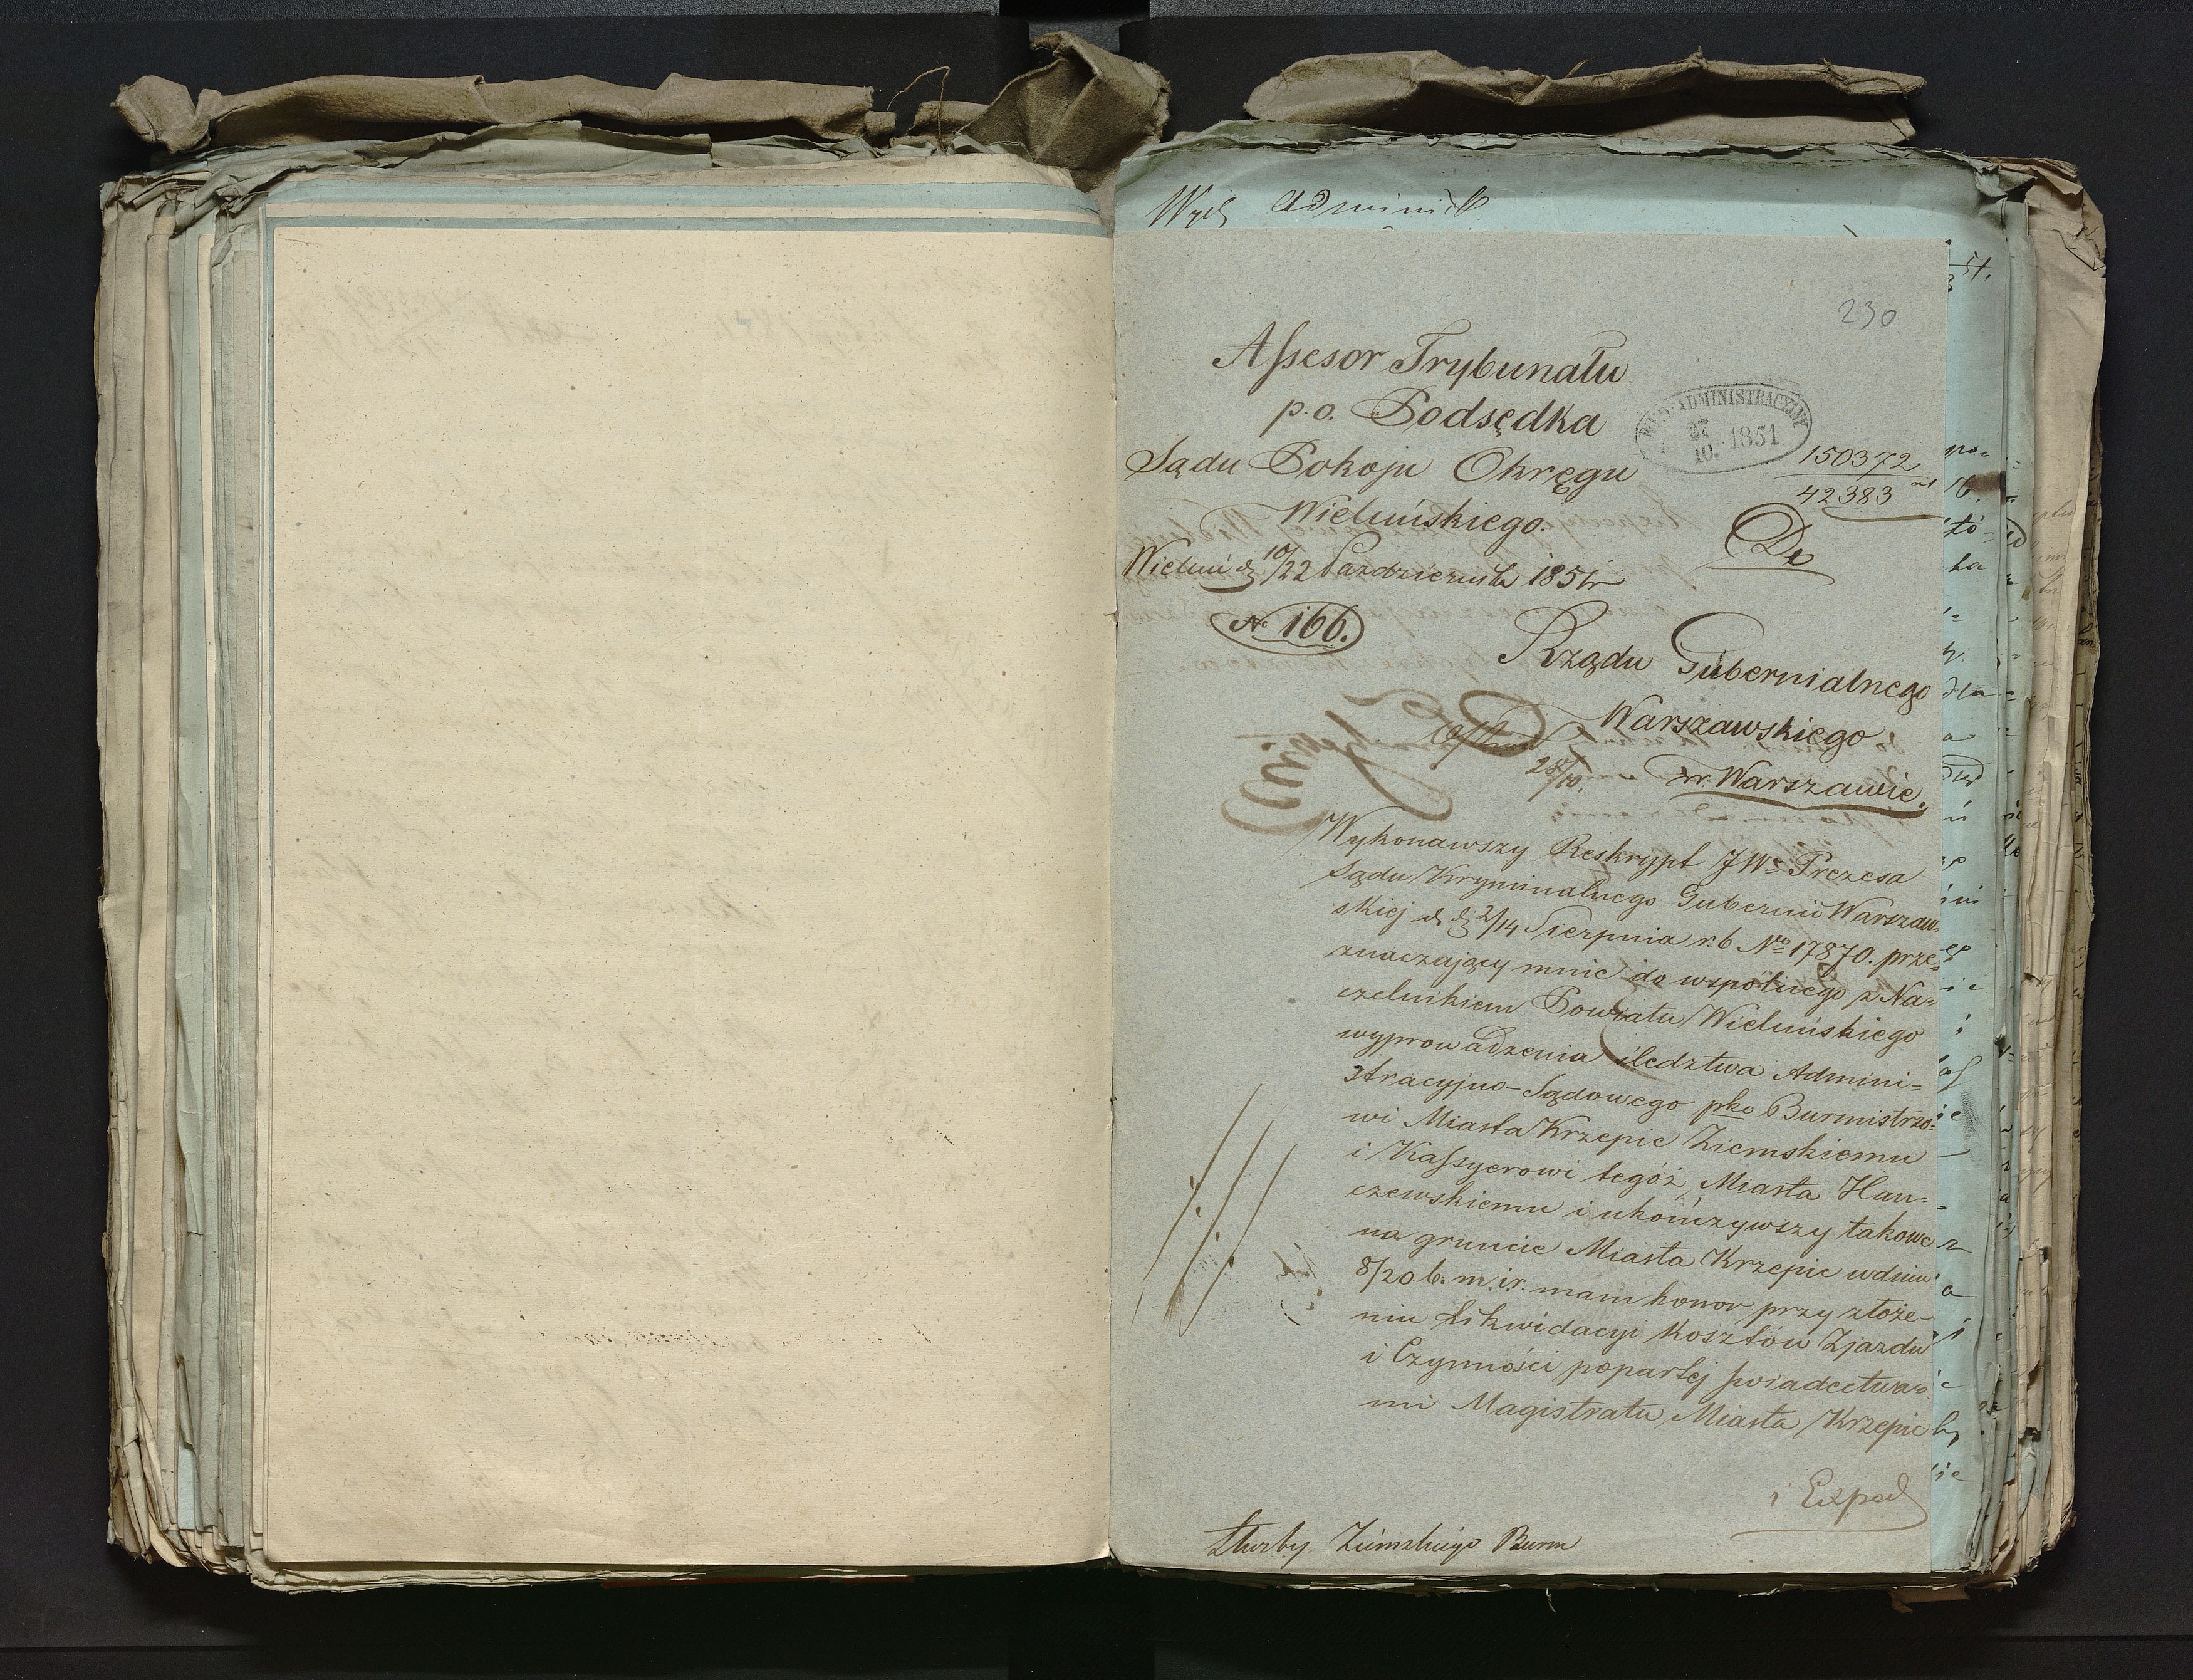 Adminis
230
Assesor Trybunału
p.o. Podsędka
Sądu Pokoju Okręgu
Wieluńskiego.
Wieluń d. 10/22 Październik 1851 r
WYD. ADMINISTRACYJNY
27/10. 1851
150372
42383
Do
№ 166.
Rządu Gubernialnego
Warszawskiego
28/10.
w Warszawie.
Wykonawszy Reskrypt JWo Prezesa
Sądu Kryminalnego Gubernii Warszaw-
skiej d d 2/14 Sierpnia r. b No 17870. prze-
znaczający mnie do wspólnego z Na-
czelnikiem Powiatu Wieluńskiego
wyprowadzenia śledztwa Admini=
stracyjno-Sądowego pko Burmistrzo=
wi Miasta Krzepic Ziemskiemu
i Kassyerowi tegóż Miasta Han-
czewskiemu i ukończywszy takowe
na gruncie Miasta Krzepic wdniu
8/20 b. m. i r. mam honor przy złoże-
niu Likwidacyi Kosztów Zjazdu
i Czynności popartej świadectwa-
mi Magistratu Miasta Krzepic
i Exped
Służby Ziemskiego Burm